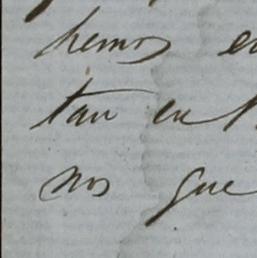 hemos
tan en
nos que